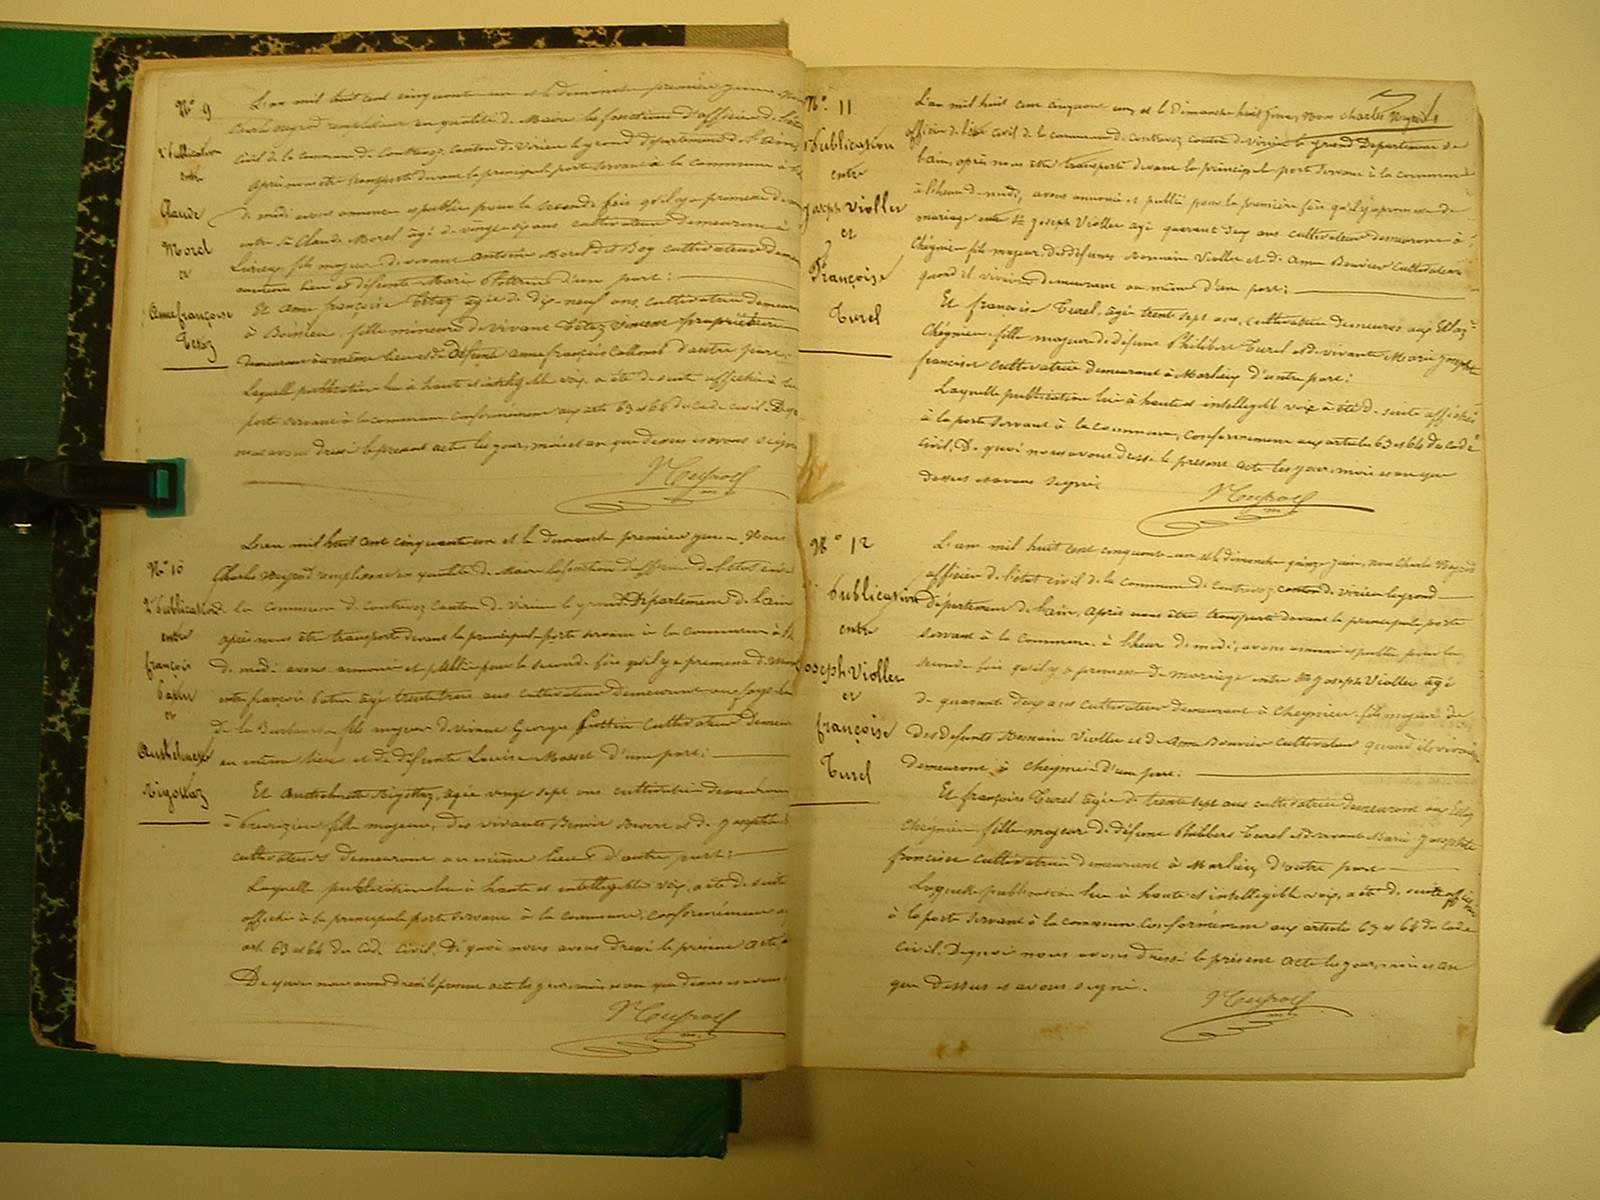 N° 9
2e Publication
entre
Claude
Morel
et
Anne françoise
Tetaz
L'an mil huit cent cinquante un et le dimanche premier juin
remplissant en qualité de Maire les fonctions d'officier de l'état
civil de la commune de Contrevoz canton de Virieu le grand département de l'ain
après nous être transporté devant la principale porte servant à la commune à
de midi avons annoncé et publié pour la seconde fois qu'il y a promesse de
entre Sr Claude Morel agé de vingt six ans cultivateur demeurant à
fils majeur de vivant Antoine Morel dit Boy cultivateur
même lieu et défunte Marie d'une part :
Et Anne françoise Tetaz agée de dix neuf ans cultivatrice demeurant
à fille mineure de vivant Tetaz Vincent propriétaire
demeurant au même lieu et de défunte anne françoise d'autre part.
Laquelle publication lue à haute et intelligible voix, a été de suite affichée à la
porte servant à la commune conformément aux arts 63 et 64 du code civil. De quoi
nous avons dressé le présent acte les jour, mois et an que dessus et avons signé
N° 10
2e Publication
entre
françois
et
Anthelmette
Rigottaz
L'an mil huit cent cinquante un et le dimanche premier juin. Nous
Charles remplissant en qualité de Maire la fonction d'officier de l'état civil
de la commune de Contrevoz Canton de Virieu le grand Département de l'ain
après nous être transporté devant la principale porte servant à la commune à
de midi avons annoncé et publié pour la seconde fois qu'il y a promesse de
entre françois agé trente trois ans cultivateur demeurant
de la fils majeur de vivant George cultivateur
au même lieu et de défunte Louise Masset d'une part :
Et Anthelmette Rigottaz, agée vingt sept ans cultivatrice demeurant
à fille majeure, des vivants Benoit et de Josephte
cultivateurs demeurant au même lieu d'autre part :
Laquelle publication lue à haute et intelligible voix, a été de suite
affichée à la principale porte servant à la commune, conformément
art. 63 et 64 du Code Civil. De quoi nous avons dressé le présent acte
De quoi nous avons dressé le présent acte les jour, mois et an que dessus et avons
N° 11
Publication
entre
Joseph Viollet
et
Françoise
Turel
L'an mil huit cent cinquante un, et le Dimanche huit Juin, Nous Charles
officier de l'état civil de la commune de Contrevoz canton de Virieu le grand Département de
l'ain, après nous être transporté devant la principale porte servant à la commune
à l'heure de midi, avons annoncé et publié pour la première fois qu'il y a promesse de
mariage entre Sr Joseph Viollet agé quarante deux ans cultivateur demeurant à
Cheynieu fils majeur, des défunts Romain Viollet et d'Anne Bouvier cultivateurs
quand ils vivaient demeurant au même d'une part :
Et françoise Turel, agée trente sept ans, cultivatrice
Cheynieu fille majeure de défunt Philibert Turel et de vivante Marie Josephte
francise cultivatrice demeurant à Marlieu d'autre part :
Laquelle publication lue à haute et intelligible voix a été de suite affichée
à la porte servant à la commune, conformément aux articles 63 et 64 du code
civil. De quoi nous avons dressé le présent acte les jour, mois et an que
dessus et avons signé
N° 12
Publication
entre
Joseph Viollet
et
françoise
Turel
L'an mil huit cent cinquante un et le dimanche quinze juin, nous Charles
officier de l'état civil de la commune de Contrevoz canton de Virieu le grand
département de l'ain, après nous être transporté devant la principale porte
servant à la commune, à l'heure de midi, avons annoncé et publié pour la
seconde fois qu'il y a promesse de mariage entre Sr Joseph Viollet agé
de quarante deux ans cultivateur demeurant à Cheynieu fils majeur de
des défunts Romain Viollet et d'Anne Bouvier cultivateurs quand ils vivaient
demeurant à Cheynieu d'une part.
Et françoise Turel agée de trente sept ans cultivatrice demeurant
Cheynieu fille majeure de défunt Philibert Turel et de vivante Marie Josephte
francise cultivatrice demeurant à Marlieu d'autre part
Laquelle publication lue à haute et intelligible voix, a été de suite affichée
à la porte servant à la commune conformément aux articles 63 et 64 du code
civil. De quoi nous avons dressé le présent acte les jour, mois et an
que dessus et avons signé.